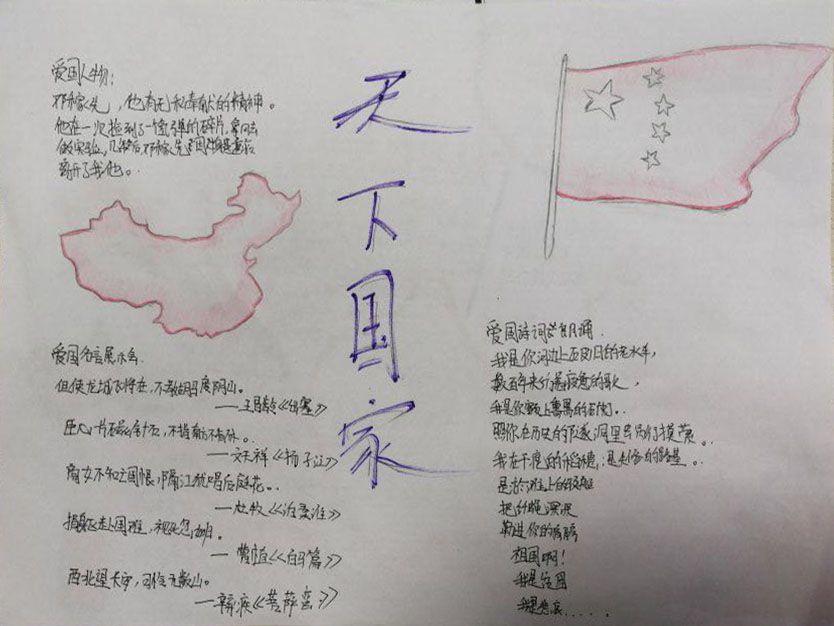 爱国人物：
邓稼先，他有无私奉献的精神。
他在一次捡到了一颗弹的碎片，拿回去
做实验，几年后，邓稼先
离开了我们。
天下国家
爱国名言展示会
但使龙城飞将在，不教胡马度阴山。
——王昌龄《出塞》
臣心一片磁针石，不指南方不肯休。
——文天祥《扬子江》
商女不知亡国恨，隔江犹唱后庭花。
——杜牧《泊秦淮》
捐躯赴国难，视死忽如归。
——曹植《白马篇》
西北望长安，可怜无数山。
——辛弃疾《菩萨蛮》
爱国诗词朗诵
我是你河边上破旧的老水车，
数百年来纺着疲惫的歌，
我是你额上熏黑的矿灯，
照你在历史的隧洞里蜗行摸索。
我是干瘪的稻穗，是失修的路基。
是淤滩上的驳船
把纤绳深深
勒进你的肩膊
祖国啊！
我是贫困
我是悲哀......